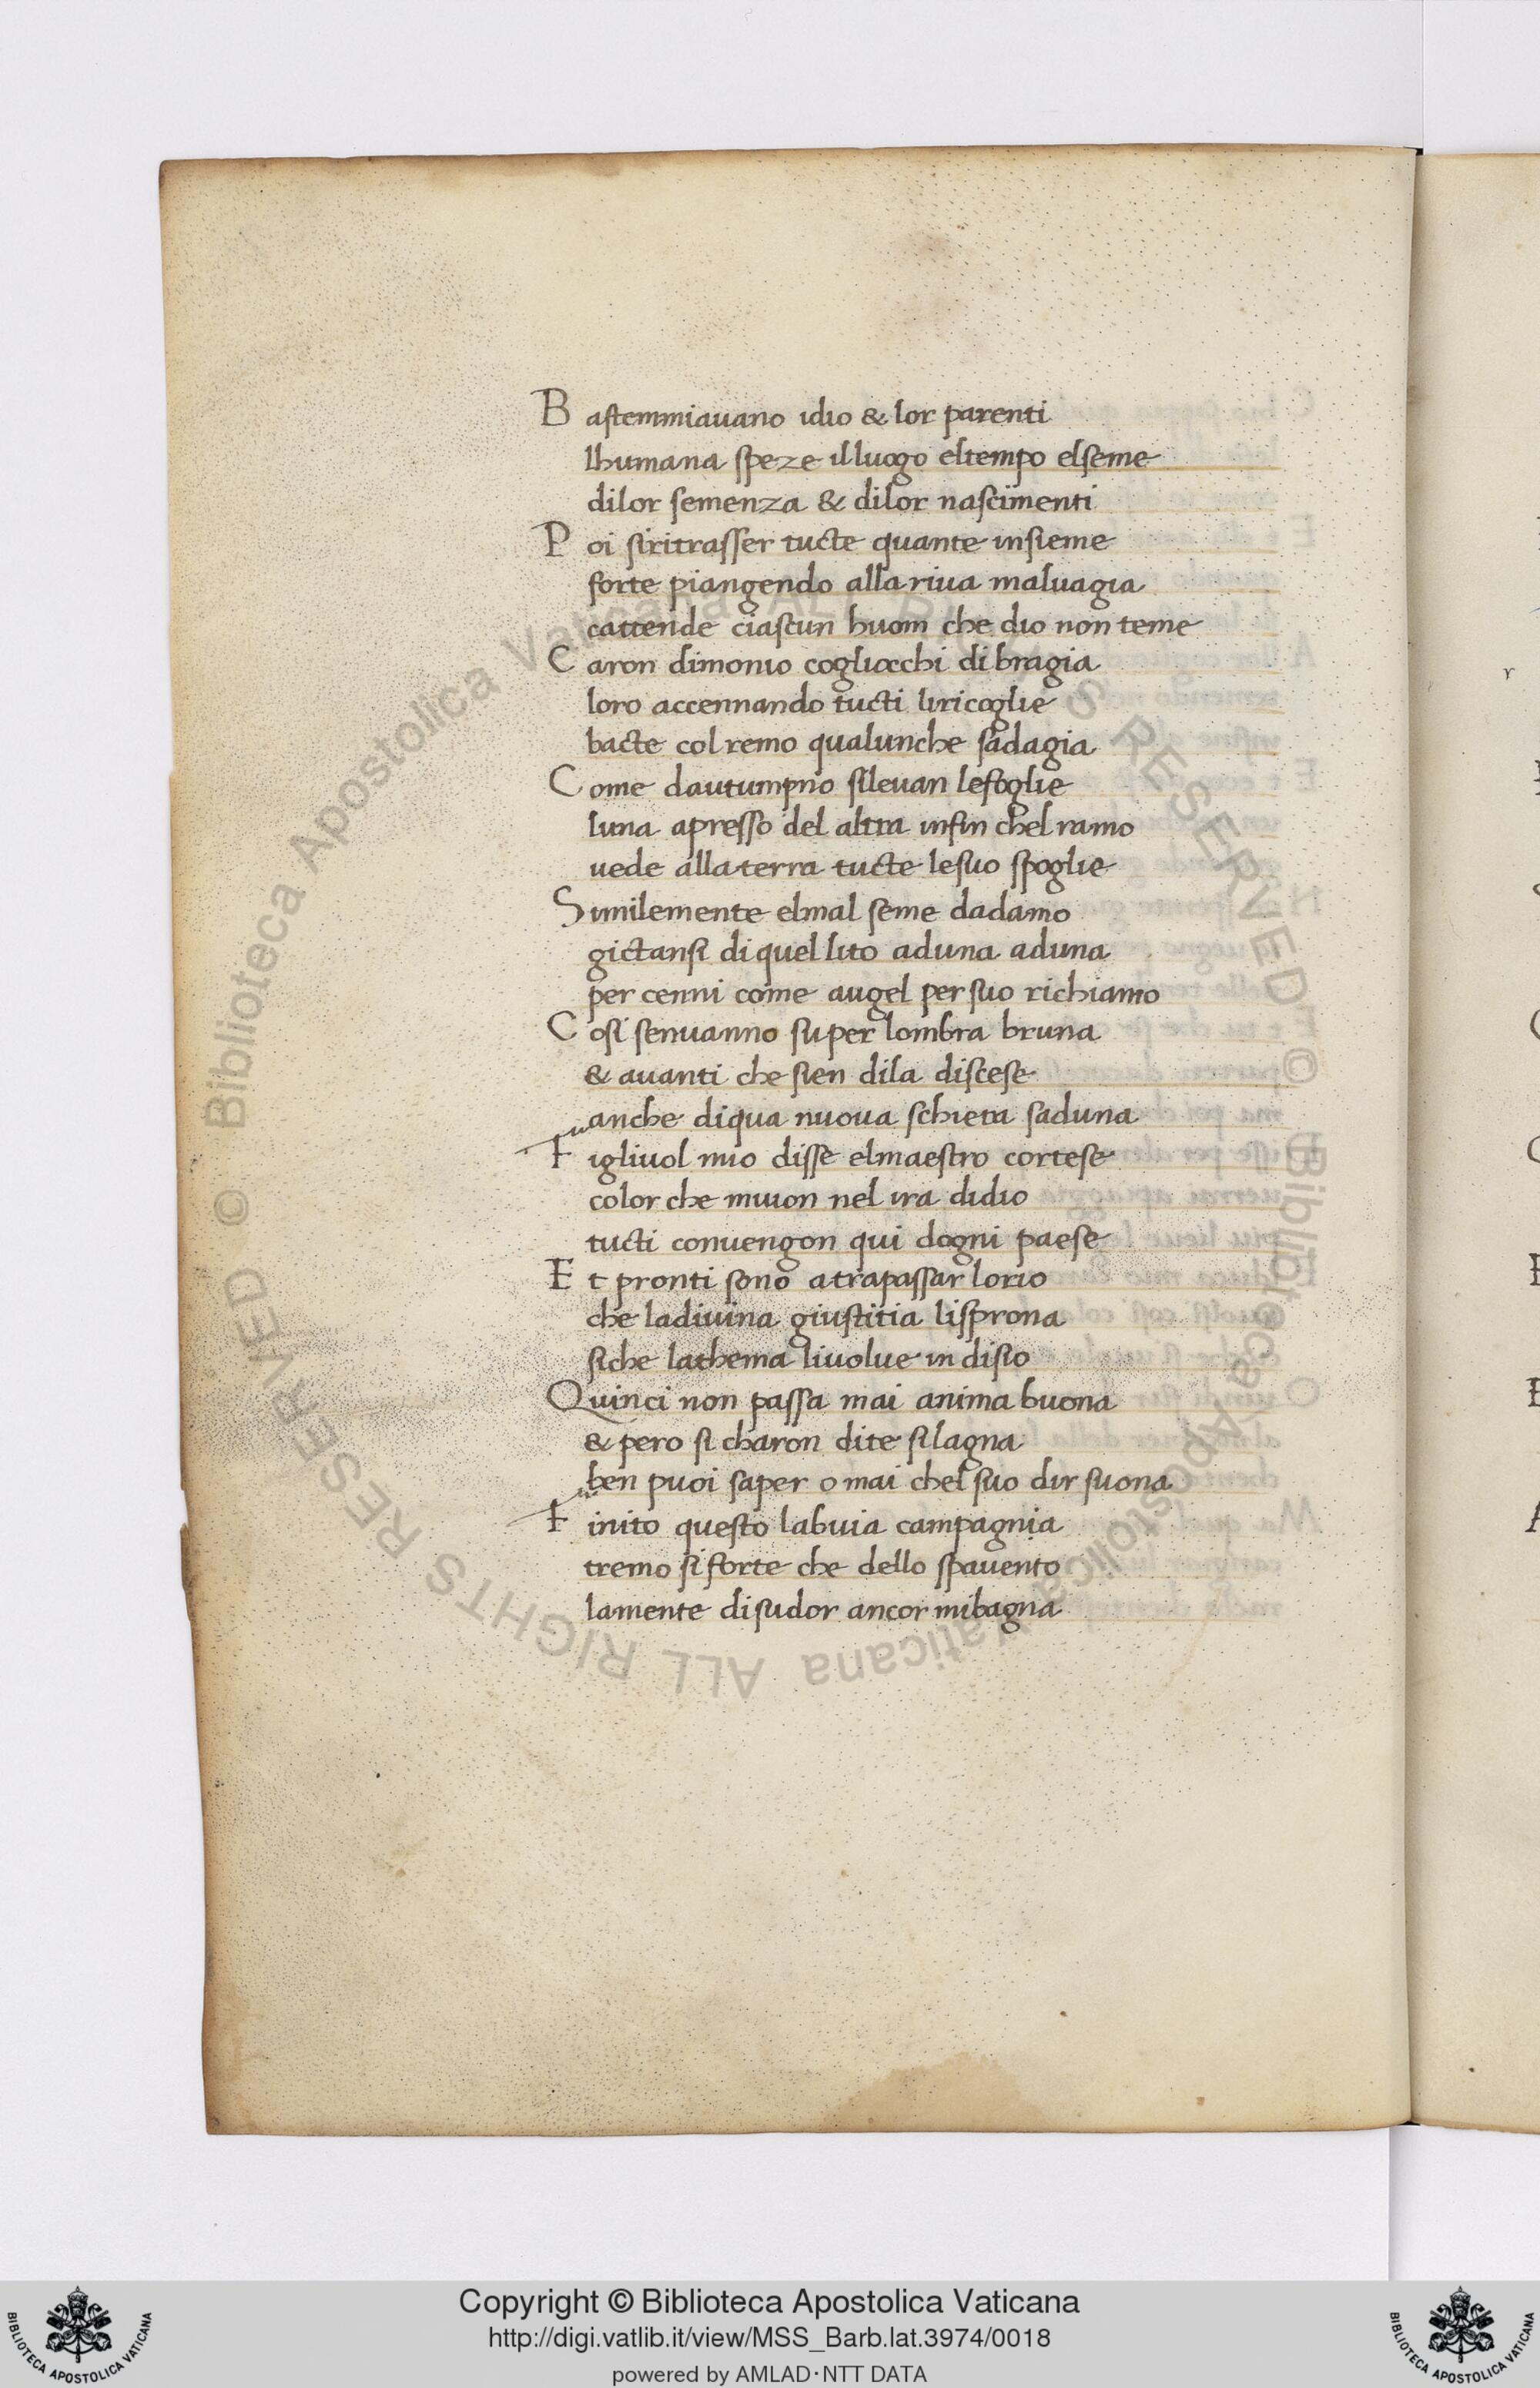 Bastemmiauano idio & lor parenti
lhumana speze illuogo eltempo elseme
dilor semenza & dilor nascimenti
Poi siritrasser tucte quante insieme
forte piangendo alla riua maluagia
cattende ciascun huom che dio non teme
Caron dimonio cogliocchi di bragia
loro accennando tucti liricoglie
bacte col remo qualunche sadagia
Come dautumpno sileuan lefoglie
luna apresso del altra infin chel ramo
uede alla terra tucte lesuo spoglie
Similemente elmal seme dadamo
gictansi di quel lito aduna aduna
per cenni come augel per suo richiamo
Cosi senuanno su per lombra bruna
& auanti che sien dila discese
anche diqua nuoua schiera saduna
Figliuol mio disse elmaestro cortese
color che muion nel ira didio
tucti conuengon qui dogni paese
Et pronti sono atrapassar lorio
che ladiuina giustitia lisprona
siche lathema liuolue in disio
Quinci non passa mai anima buona
& pero si charon dite silagna
ben puoi saper o mai chel suo dir suona
Finito questo labuia campagnia
tremo si forte che dello spauento
lamente disudor ancor mibagna
Biblioteca Apostolica Vaticana ALL RIGHTS RESERVED ©
Biblioteca Apostolica Vaticana ALL RIGHTS RESERVED ©
Copyright © Biblioteca Apostolica Vaticana
http://digi.vatlib.it/view/MSS_Barb.lat.3974/0018
powered by AMLAD·NTT DATA
BIBLIOTECA APOSTOLICA VATICANA
BIBLIOTECA APOSTOLICA VATICANA